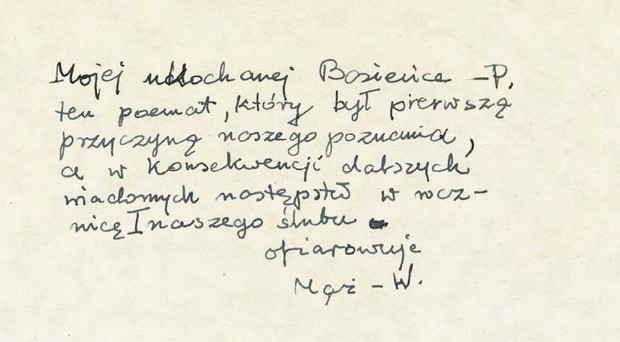 Mojej ukochanej Bosieńce – P.
ten poemat, który był pierwszą
przyczyną naszego poznania,
a w konsekwencji dalszych
wiadomych następstw w rocz-
nicę I naszego ślubu
ofiarowuje
Mąż – W.